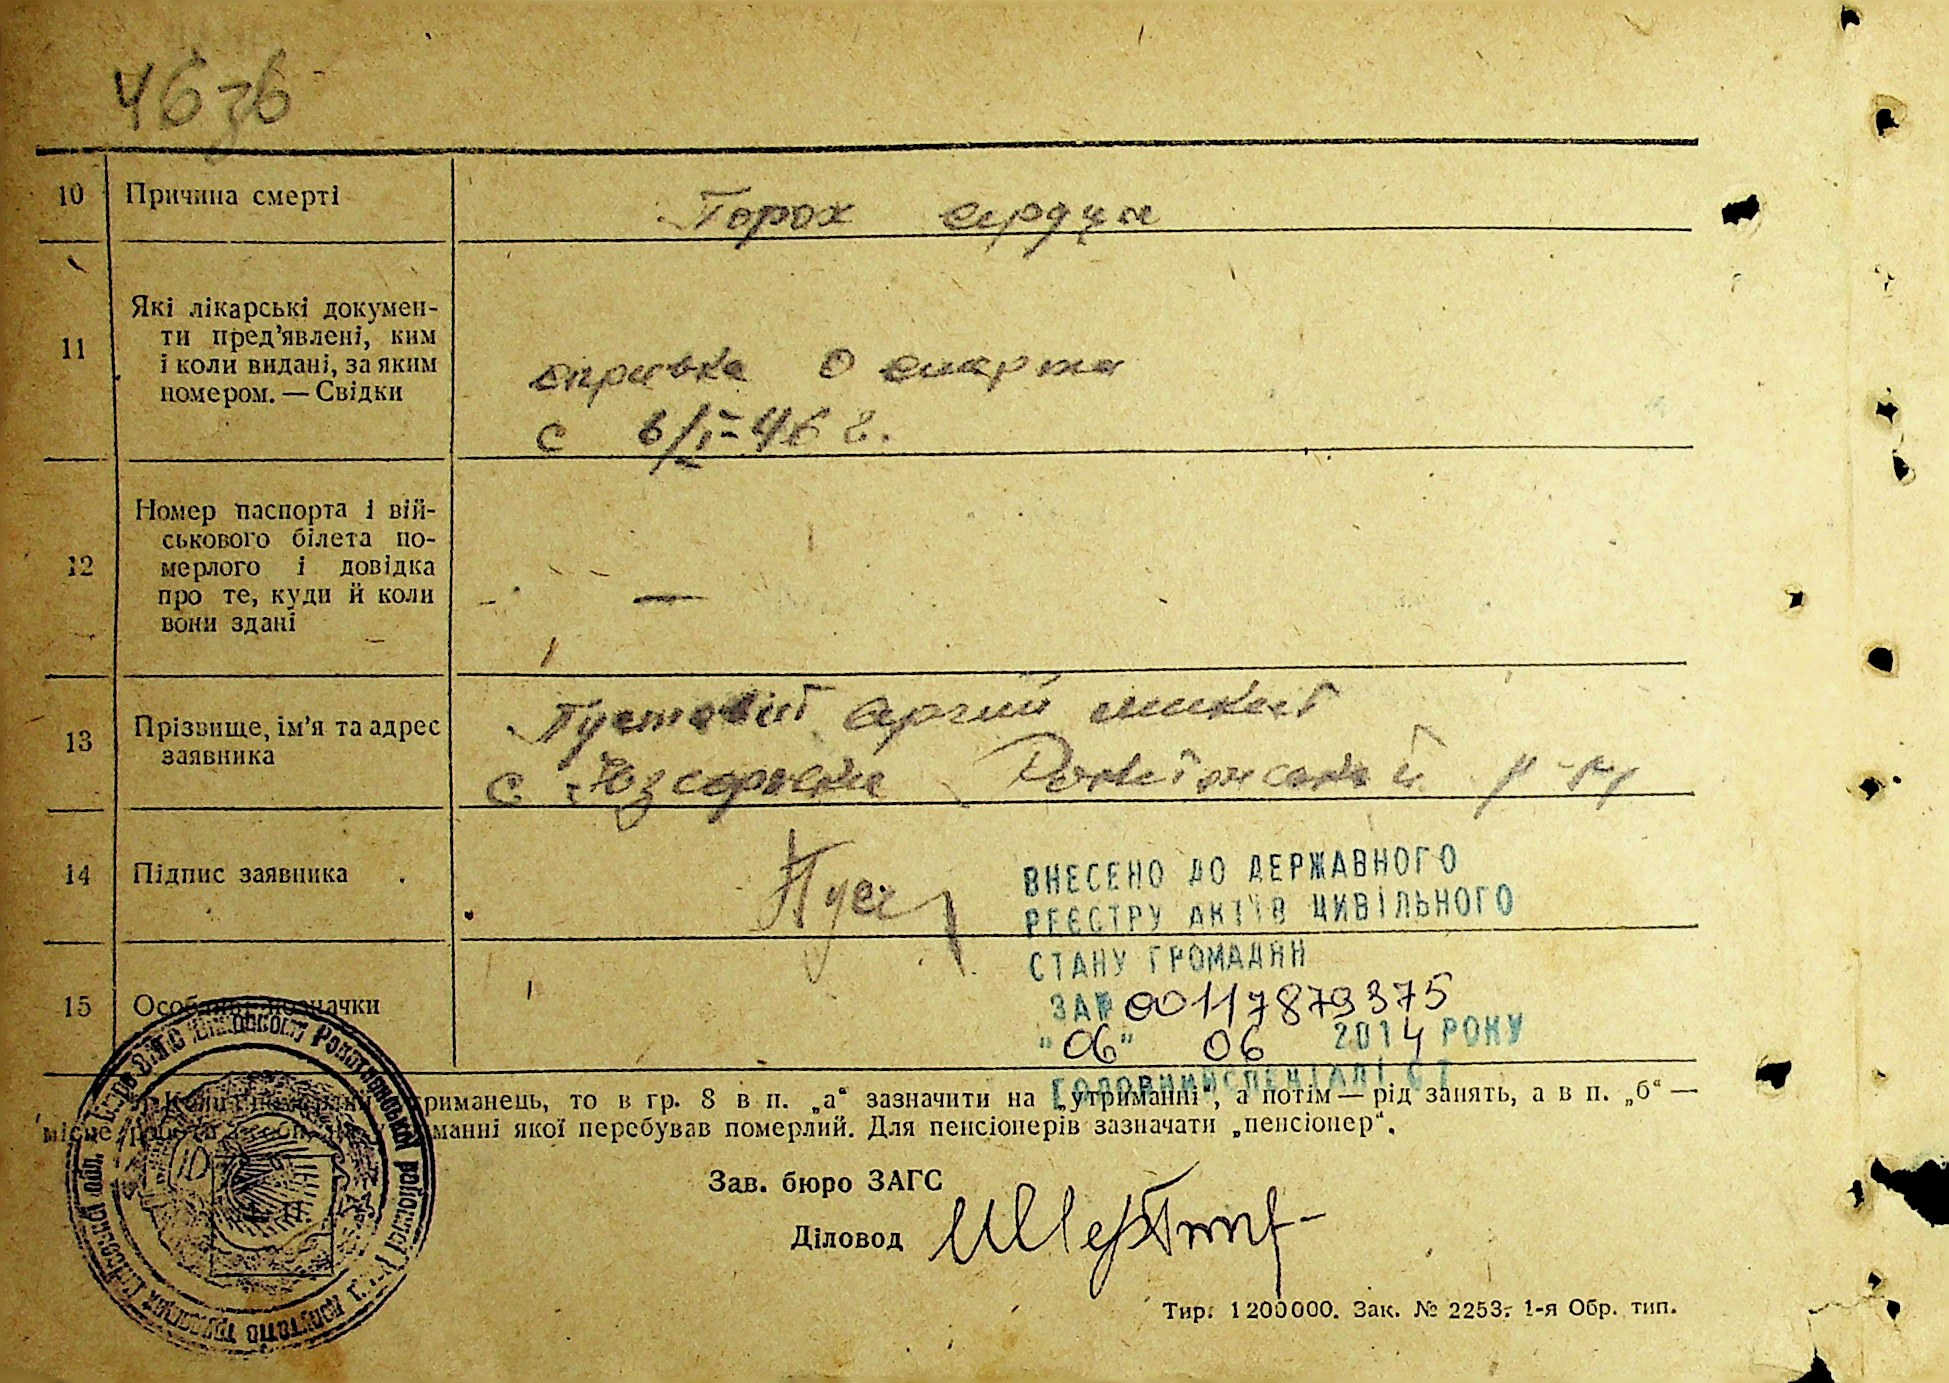 46 зв
10 Причина смерті
Порок сердца
11 Які лікарські докумен-
ти пред'явлені, ким
і коли видані, за яким
номером. — Свідки
справка о смерти
с 6/II-46 г.
12 Номер паспорта і вій-
ськового білета по-
мерлого і довідка
про те, куди й коли
вони здані
—
13 Прізвище, ім'я та адрес
заявника
Пустовіт Сергий
с. р-н
14 Підпис заявника
Пуст
15 Особливі позначки
ВНЕСЕНО ДО ДЕРЖАВНОГО
РЕЄСТРУ АКТІВ ЦИВІЛЬНОГО
СТАНУ ГРОМАДЯН
ЗА № 00117879375
"06" 06 2014 РОКУ
ГОЛОВНИЙ СПЕЦІАЛІСТ
утриманець, то в гр. 8 в п. „а“ зазначити на „утриманні“, а потім — рід занять, а в п. „б“ —
утриманні якої перебував померлий. Для пенсіонерів зазначати „пенсіонер“.
Зав. бюро ЗАГС
Діловод
Тир. 1200000. Зак. № 2253. 1-я Обр. тип.